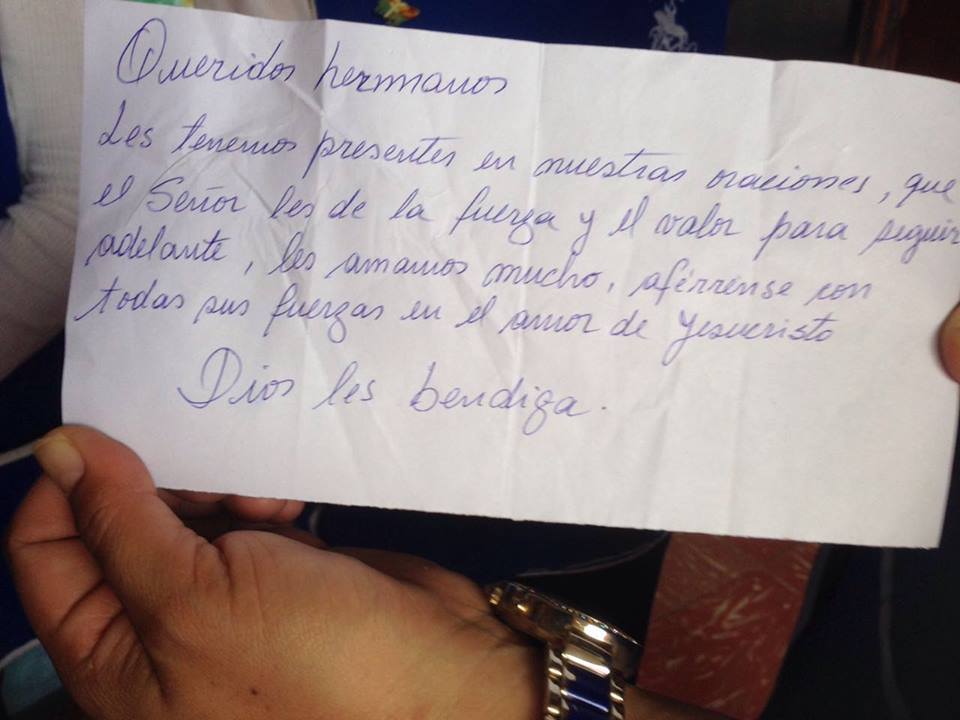 Queridos hermanos
Les tenemos presentes en nuestras oraciones, que
el Señor les de la fuerza y el valor para seguir
adelante, les amamos mucho, aférrense con
todas sus fuerzas en el amor de Jesucristo
Dios les bendiga.